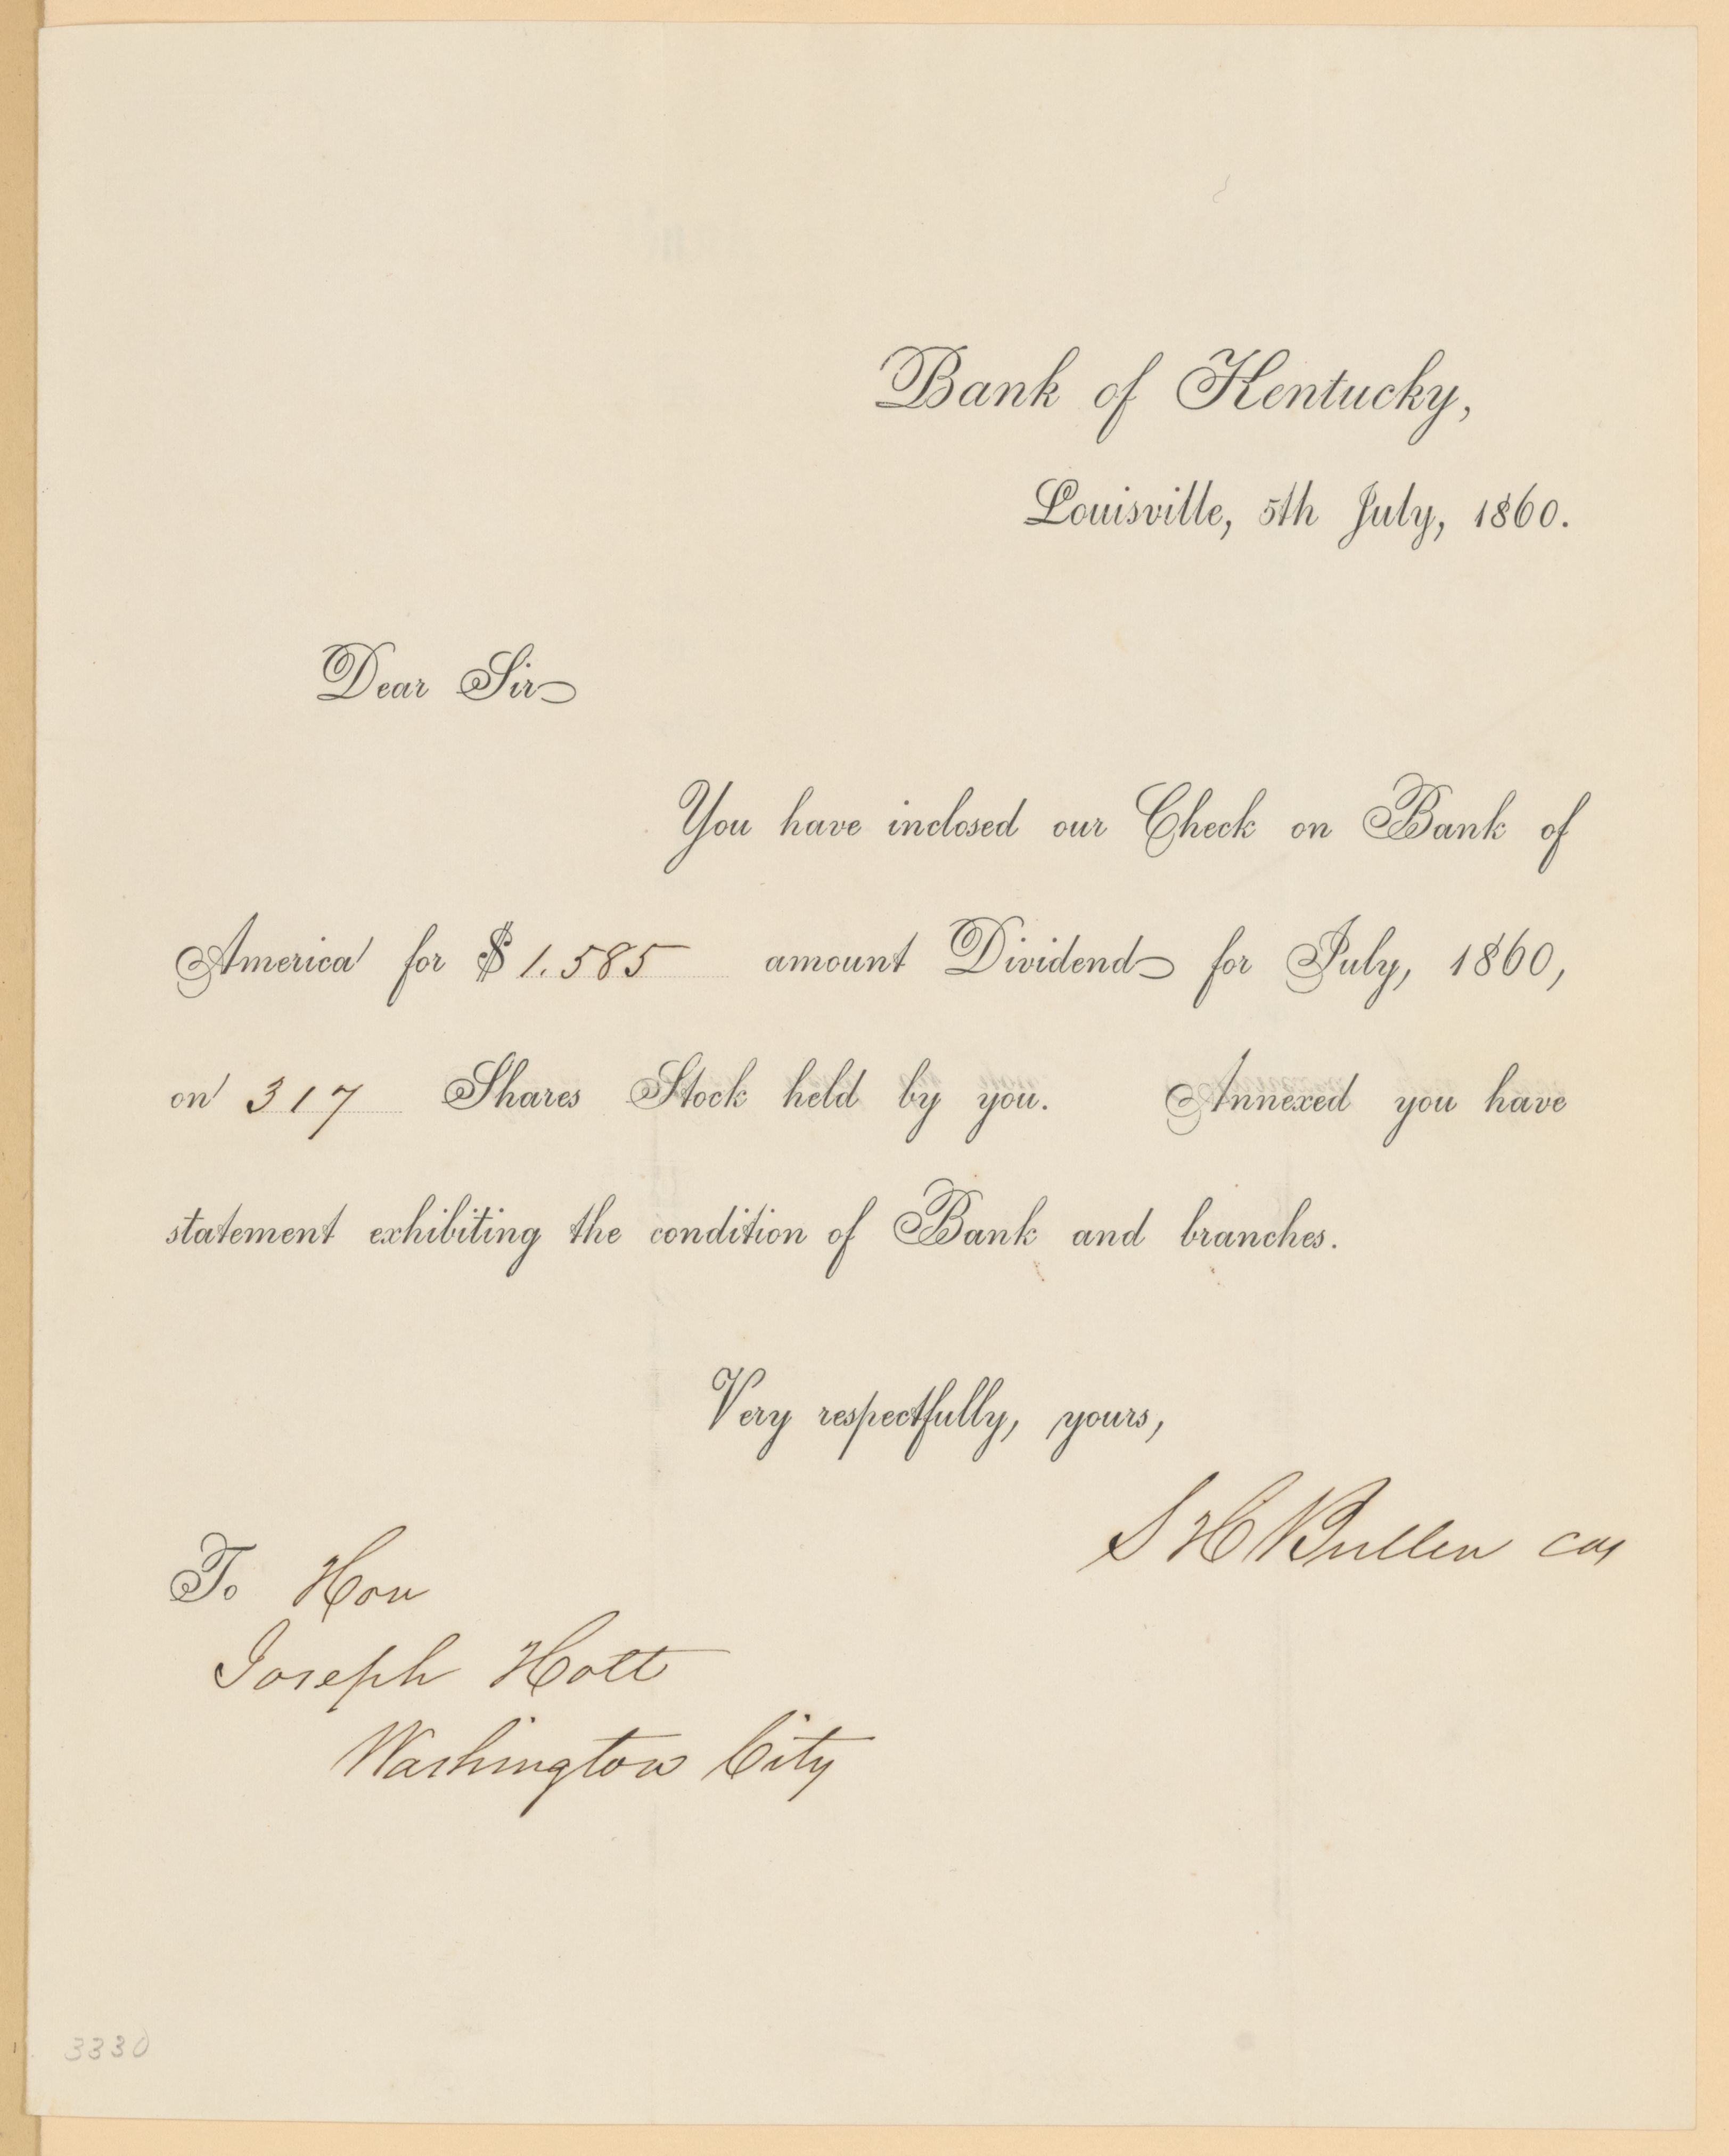 Bank of Kentucky,
Louisville, 5th July, 1860.
Dear Sir
You have inclosed our Check on Bank of
America for $ 1.585 amount Dividend for July, 1860,
on 317 Shares Stock held by you. Annexed you have
statement exhibiting the condition of Bank and branches.
Very respectfully, yours,
S H Bullen cas
To Hon
Joseph Holt
Washington City
3330